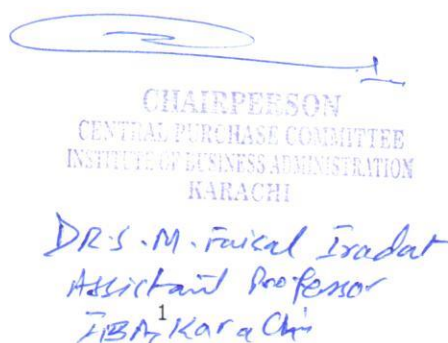 CHAIRPERSON
CENTRAL PURCHASE COMMITTEE
INSTITUTE OF BUSINESS ADMINISTRATION
KARACHI
DR.S.M.Faisal Iradat
Assistant Professor
1
IBA, Karachi